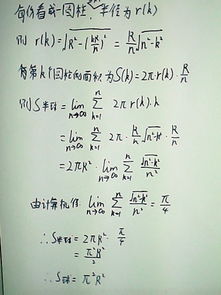 每份看成一圆柱,半径为r(k)
则 r(k)=√(R²-(kR/n)²) = R/n √(n²-k²)
有第k个圆柱侧面积为S(k)=2πr(k)·R/n
则S半球=lim(n→∞) Σ(k=1→n) 2πr(k)·h
=lim(n→∞) Σ(k=1→n) 2π·R/n √(n²-k²)·R/n
=2πR²·lim(n→∞) Σ(k=1→n) √(n²-k²)/n²
由计算机得 lim(n→∞) Σ(k=1→n) √(n²-k²)/n² = π/4
∴S半球=2πR²·π/4
=π²R²/2
∴S球=π²R²